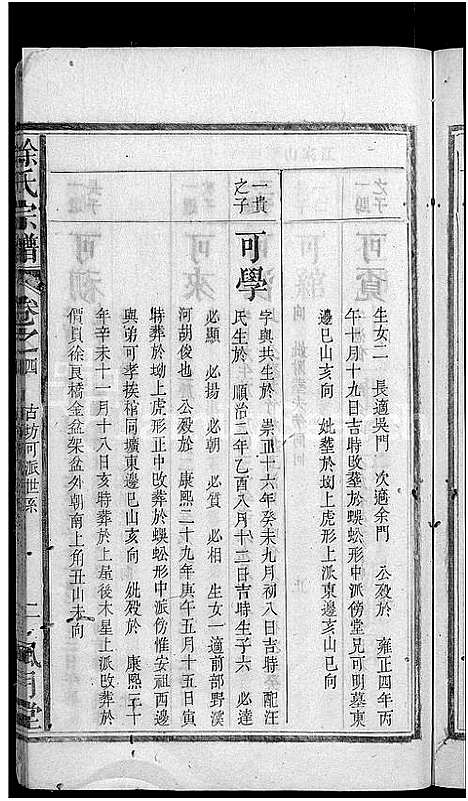 生女二 長適吳門 次適余門 公歿於 雍正四年丙
午十月十九日吉時改塟於蜈蚣形中派傍堂兄可明墓東
邊巳山亥向 妣塟於坳上虎形上派東邊亥山巳向
一貫之子 可學 字與共生於 崇正十六年癸未九月初八日吉時 配汪
氏生於 順治二年乙酉八月十二日吉時生子六 必達
必顯 必揚 必朝 必質 必相 生女一適前部野溪
河胡俊也 公歿於 康熙二十九年庚午五月十五日寅
時葬於坳上虎形正中改葬於蜈蚣形中派傍惟安祖西邊
與弟可孝挨棺同壙東邊巳山亥向 妣歿於 康熙三十
年辛未十一月十八日亥時葬於上屋後木星上派改葬於
價貝徐良橋金盆架盆外朝南上角丑山未向
徐氏宗譜 卷之四 古坊河派世系